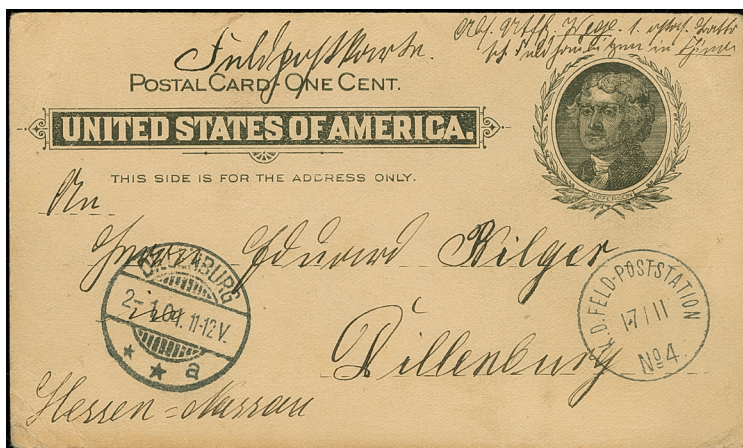 Feldpostkarte.
Abs. Uffz.
in China
POSTAL CARD - ONE CENT.
UNITED STATES OF AMERICA.
JEFFERSON
THIS SIDE IS FOR THE ADDRESS ONLY.
An
Herrn Eduard Bilger
in
Dillenburg
Hessen-Nassau
DILLENBURG
2-1.01. 11-12V.
* * a
K.D. FELD-POSTSTATION
17/11
No 4.